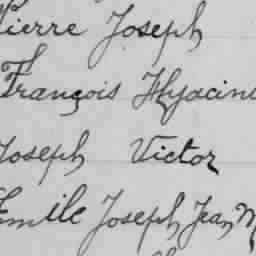 Pierre Joseph
François Hyacin
Joseph Victor
Emile Joseph Jean M